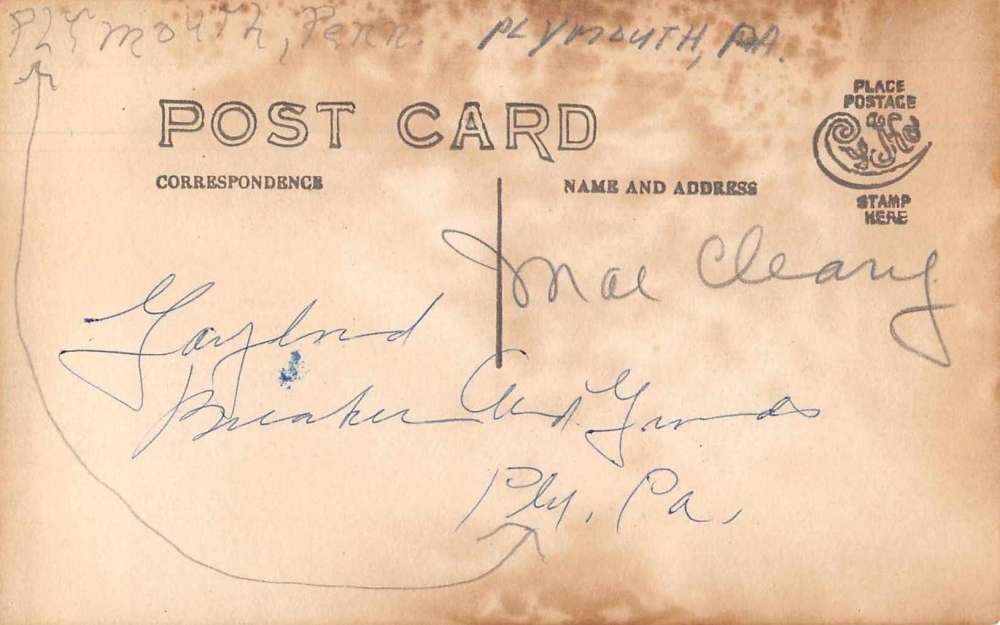 Plymouth, Penn. PLYMOUTH, PA.
POST CARD
PLACE
POSTAGE
STAMP
HERE
CORRESPONDENCE
NAME AND ADDRESS
Mae Cleary
Gaylord
Breaker And Grounds
Ply. Pa.